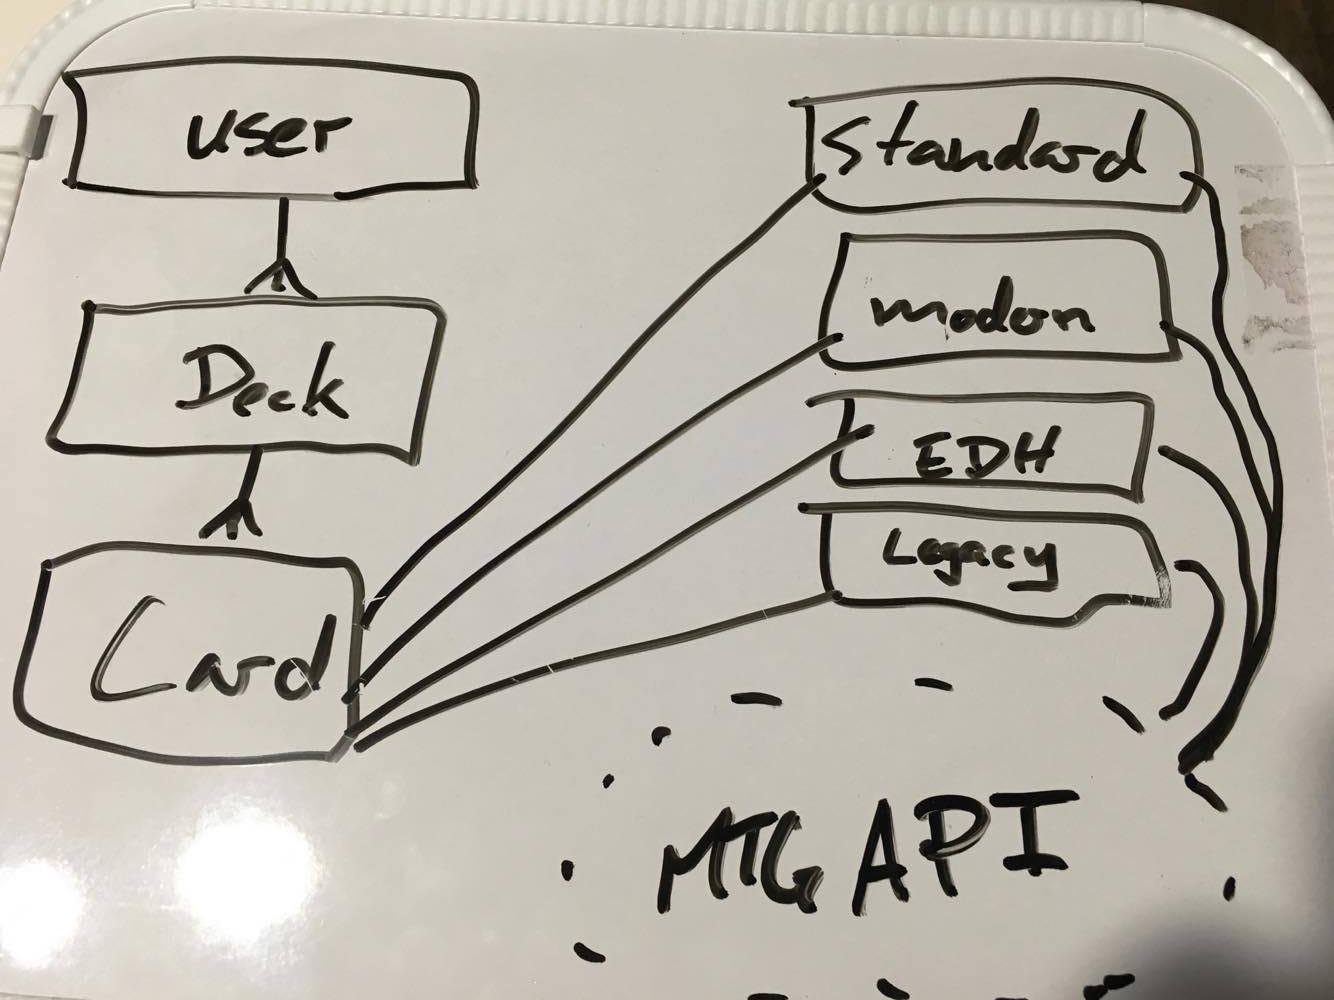 user
Deck
Card
Standard
modern
EDH
Legacy
MTG API